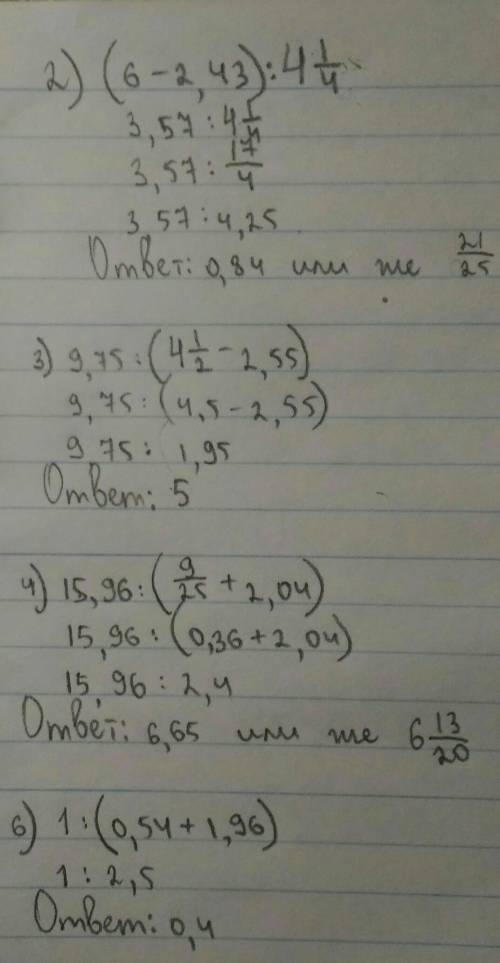 2) (6 - 2,43) : 4 1/4
3,57 : 4 1/4
3,57 : 17/4
3,57 : 4,25
Ответ: 0,84 или же 21/25
3) 9,75 : (4 1/2 - 2,55)
9,75 : (4,5 - 2,55)
9,75 : 1,95
Ответ: 5
4) 15,96 : (9/25 + 2,04)
15,96 : (0,36 + 2,04)
15,96 : 2,4
Ответ: 6,65 или же 6 13/20
6) 1 : (0,54 + 1,96)
1 : 2,5
Ответ: 0,4